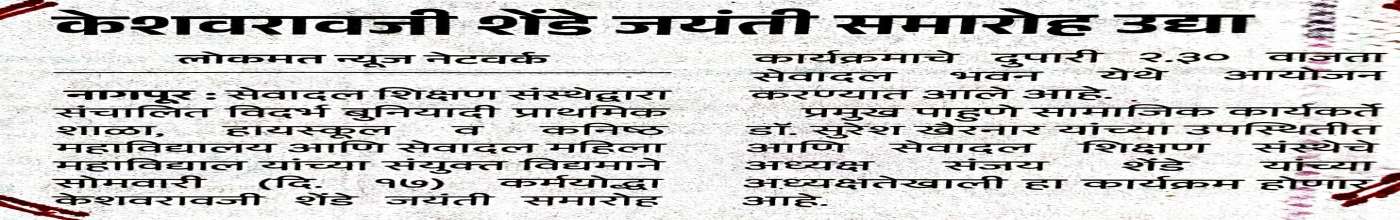 केशवरावजी शेंडे जयंती समारोह उद्या
लोकमत न्यूज नेटवर्क
नागपूर : सेवादल शिक्षण संस्थेद्वारा
संचालित विदर्भ बुनियादी प्राथमिक
शाळा, हायस्कूल व कनिष्ठ
महाविद्यालय आणि सेवादल महिला
महाविद्याल यांच्या संयुक्त विद्यमाने
सोमवारी (दि. १७) कर्मयोद्धा
केशवरावजी शेंडे जयंती समारोह
कार्यक्रमाचे दुपारी २.३० वाजता
सेवादल भवन येथे आयोजन
करण्यात आले आहे.
प्रमुख पाहुणे सामाजिक कार्यकर्ते
डॉ. सुरेश खैरनार यांच्या उपस्थितीत
आणि सेवादल शिक्षण संस्थेचे
अध्यक्ष संजय शेंडे यांच्या
अध्यक्षतेखाली हा कार्यक्रम होणार
आहे.